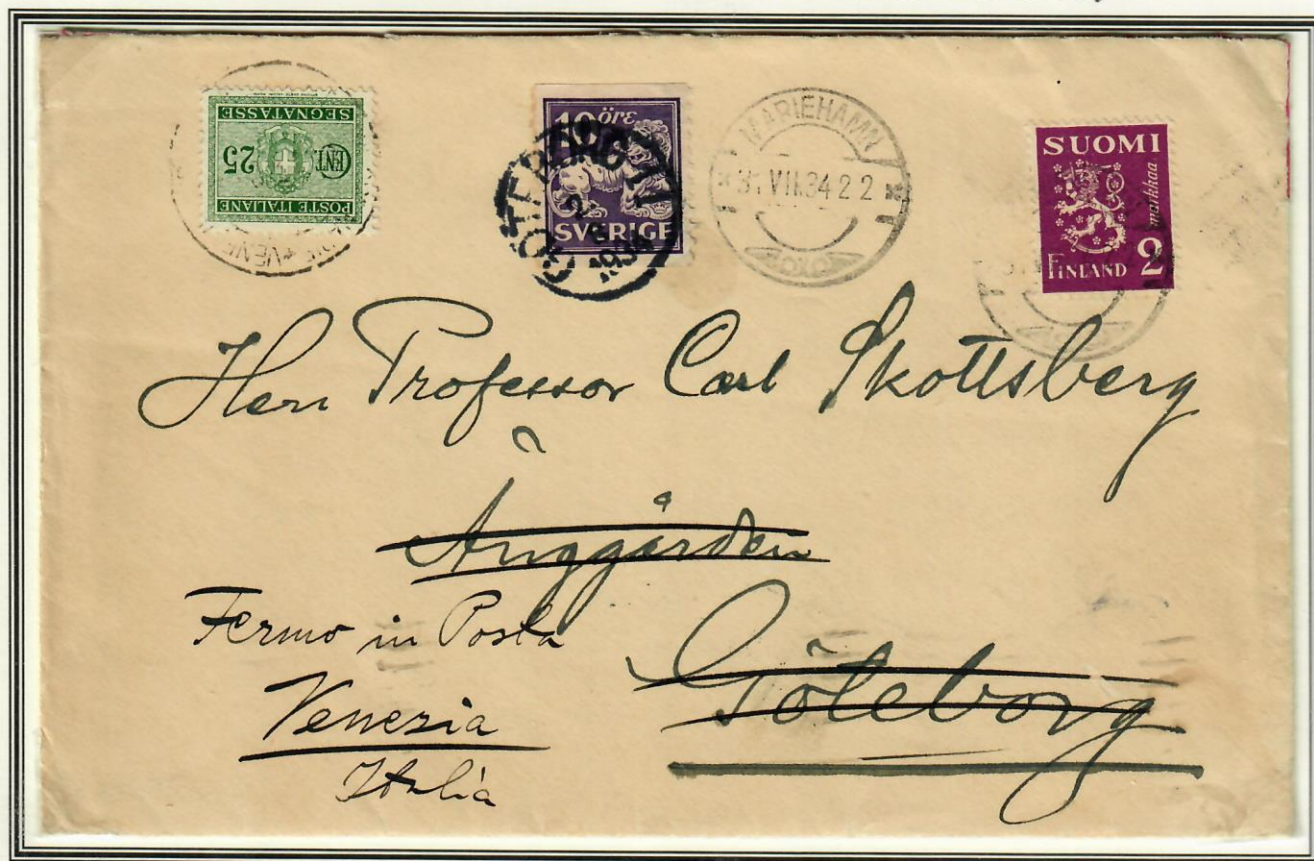 POSTE ITALIANE
CENT. 25
SEGNATASSE
10 öre
SVERIGE
GÖTEBORG
1934
MARIEHAMN
VII.34 22
SUOMI
2 markkaa
FINLAND
Herr Professor Carl Skottsberg
Änggården
Göteborg
Fermo in Posta
Venezia
Italia